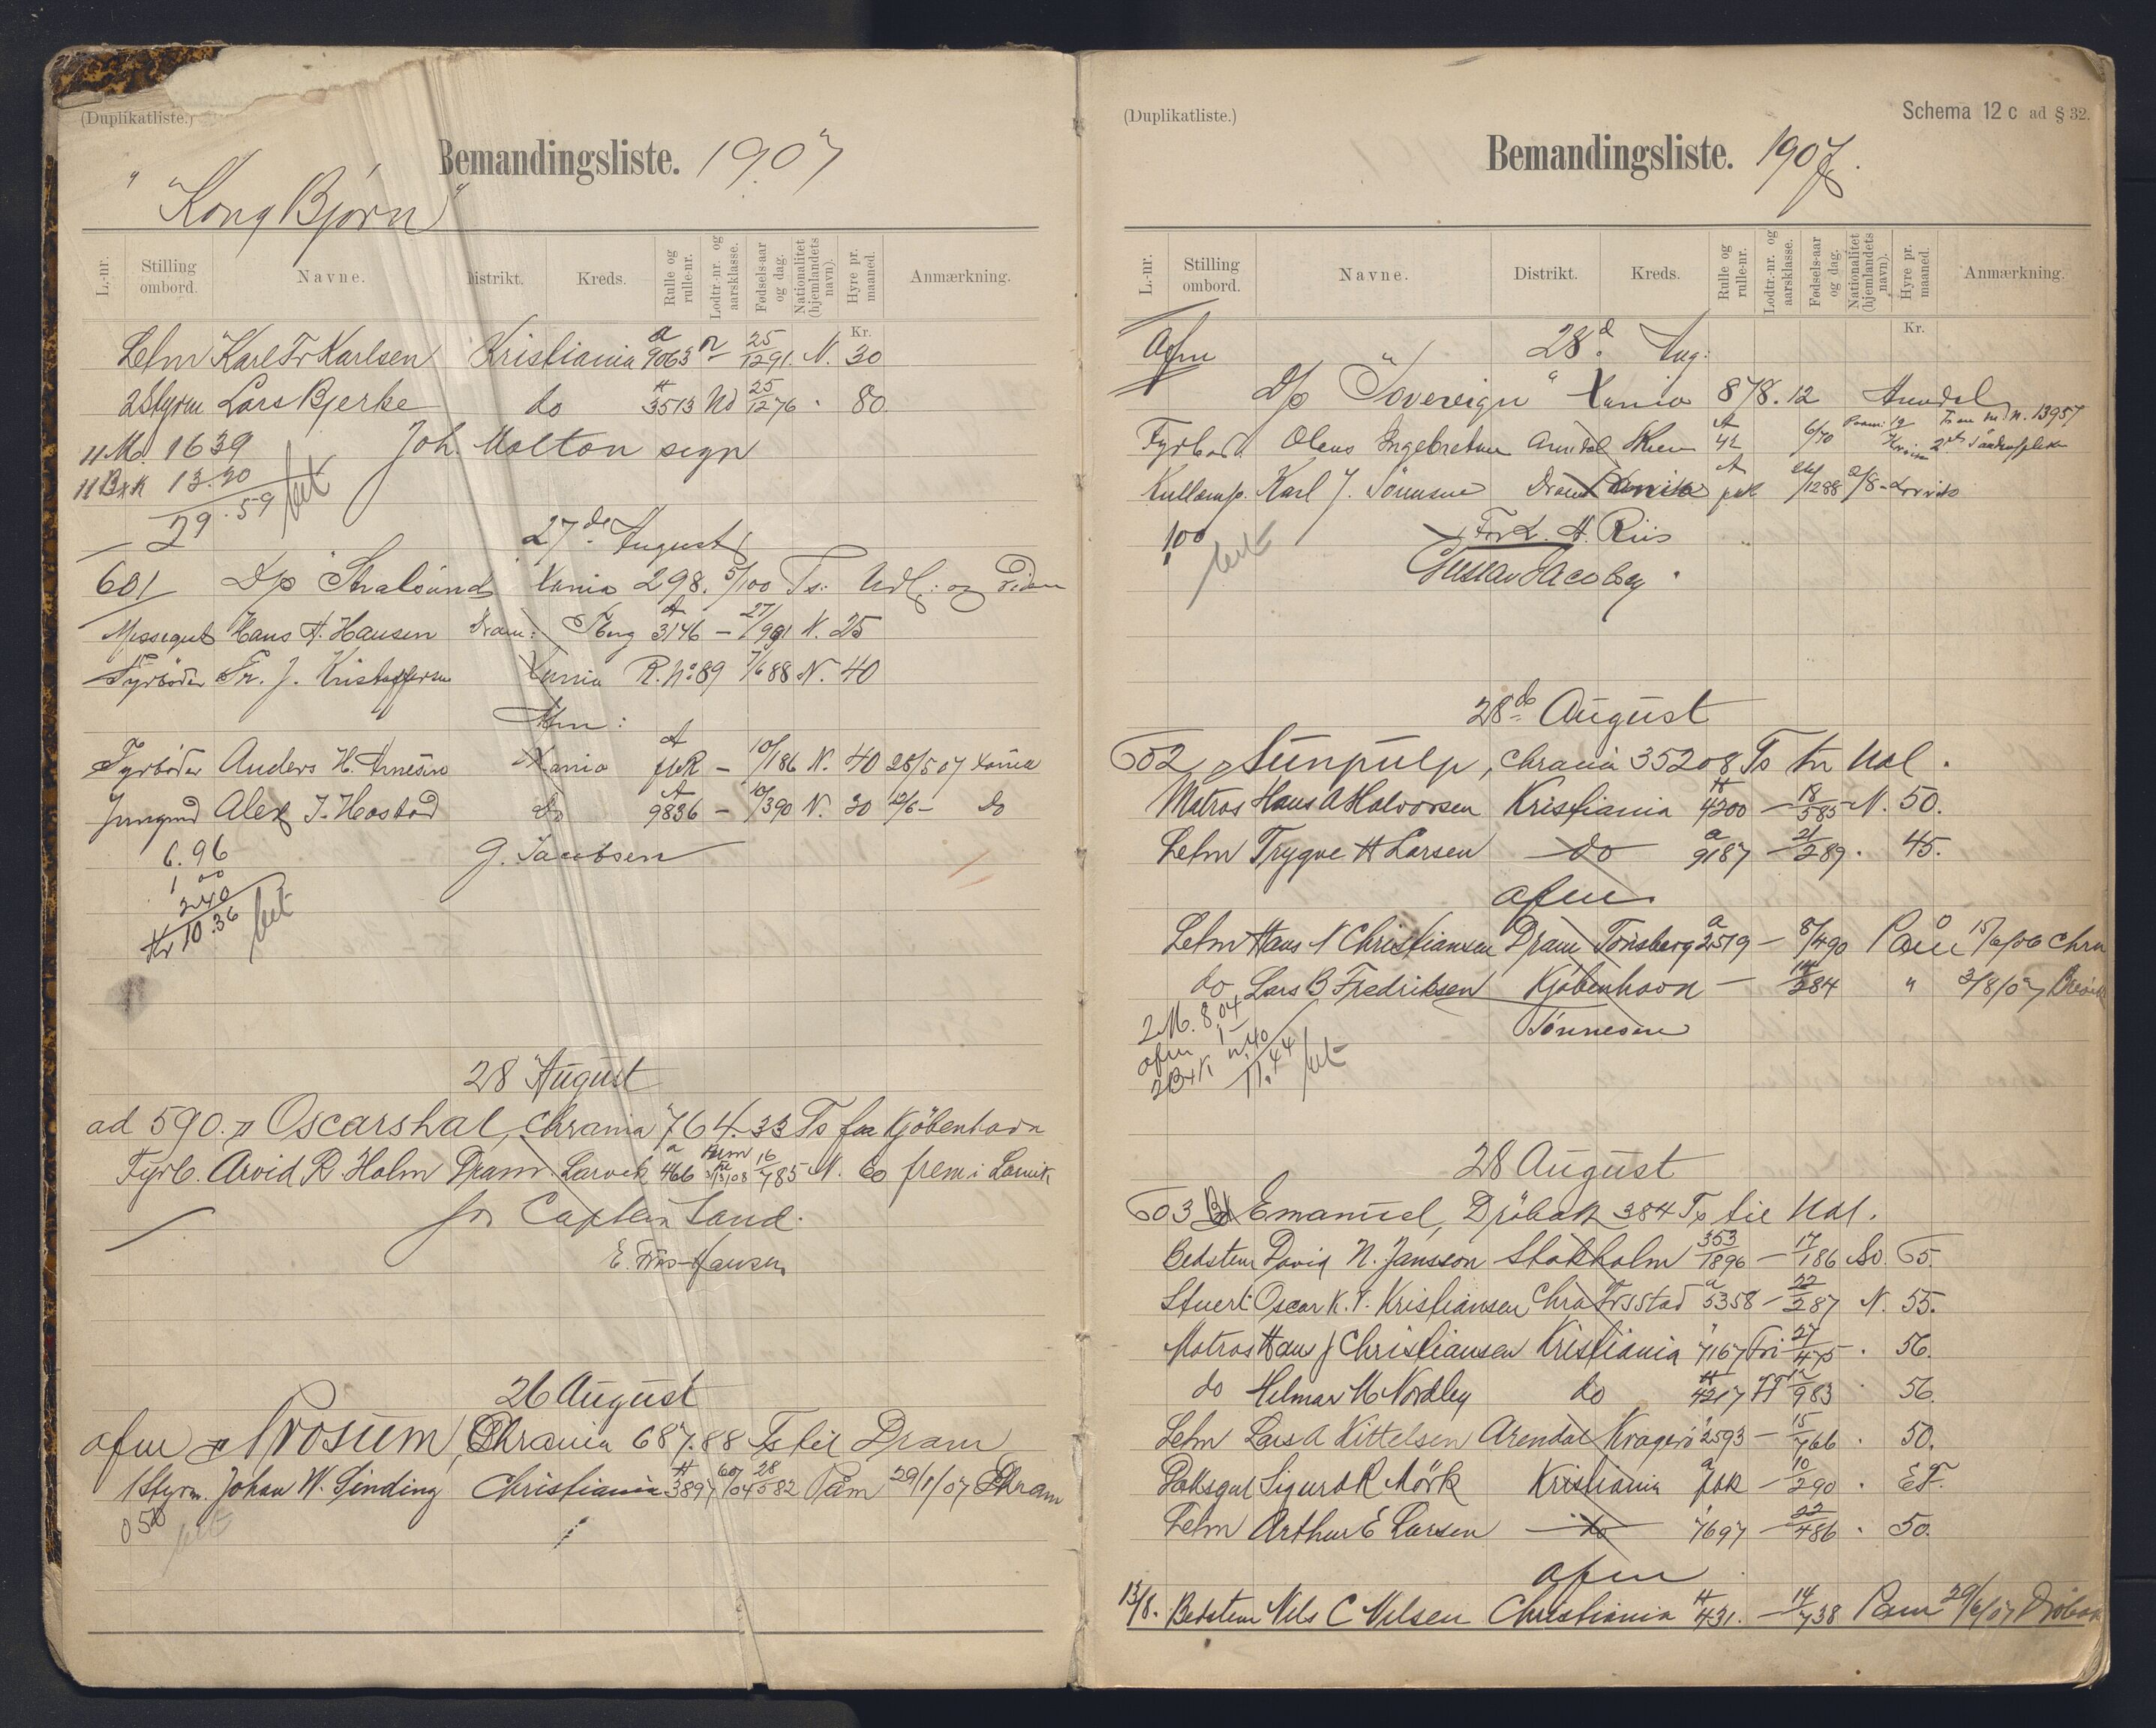 (Duplikatliste.)
Bemandingsliste. 1907
"Kong Bjørn"
L.-nr. Stilling ombord. Navne. Distrikt. Kreds. Rulle og rulle-nr. Lodtr.-nr. og aarsklasse. Fødsels-aar og dag. Nationalitet (hjemlandets navn). Hyre pr. maaned. Anmærkning.
Kr.
Letm Karl Fr Karlsen Kristiania a 9063 25/12 91. N. 30
2 Styrm Lars Bjerke do 3513 25/12 76 80.
11 M. 1639 Joh. Molton sign
13.20
29.59
27de August
601 D/s Stralsund Xania 298.5/100 Ts:
Messegut Hans A. Hansen Dram: Tberg A 3146 - 27/9 91 N. 25
Fyrbøder Fr. J. Kristoffersen Xania R. No 89 7/6 88 N. 40
Afm:
Fyrbøder Anders H. Arnesen Xania A - 10/1 86 N. 40 28/5 07 Xania
Jungmd Alex J. Hostad do A 9836 - 10/3 90 N. 30 12/6 - do
6.96 G. Jacobsen
1.00
2.40
Kr 10.36
28 August
ad 590. Oscarshal, Chrania 764.33 Ts fra Kjöbenhavn
Fyrb. Arvid R Holm Dram. Larvik a 466 16/7 85 N. 60 frem i Larvik
for Captein Sand.
E. Friis-Hansen
26 August
afm Prosum, Chrania 687.88 Ts til Dram
1 Styrm. Johan W. Sinding Christiania 3897 28/5 82 Påm 29/1/07 Chram
050
(Duplikatliste.) Schema 12 c ad § 32.
Bemandingsliste. 1907.
L.-nr. Stilling ombord. Navne. Distrikt. Kreds. Rulle og rulle-nr. Lodtr.-nr. og aarsklasse. Fødsels-aar og dag. Nationalitet (hjemlandets navn). Hyre pr. maaned. Anmærkning.
Kr.
Afm 28d. Aug:
D/s "Sovereign" Xania 878.12 Arendal
Fyrbød. Olens Engebretsen Arendal Skien A 42 6/70
Kullemp. Karl J. Sörensen Dram Xania A 24/12 88 2/8 -
100 For L. A. Riis
Gustav Jacobsen
28de August
602 Sunpulp, Chrania 35208 Ts Hr Hal.
Matros Hans A Halvorsen Kristiania A 4200 - 18/5 85 N. 50.
Letm Trygve H Larsen do a 9187 - 21/2 89. 45.
afm.
Letm Hans N Christiansen Dram Tønsberg a 2519 - 8/4 90 Påm 15/6/06 Chra
do Lars B Fredriksen Kjøbenhavn - 14/2 84 " 3/8/07
2 M. 8.04 Tønnesen
afm 1 -
11.44
28 August
603 Emanuel, Dröbak 384 Ts til Hal.
Bedstem David N. Jansson Stokholm 353/1896 - 17/1 86 So. 65.
Stuert Oscar K. V. Kristiansen Chra Frsstad a 5358 - 22/2 87 N. 55.
Matros Hans J Christiansen Kristiania 7167 Fri 27/4 75 . 56.
do Hilmar M Nordley do A 4217 12/9 83 56.
Letm Lars A Kittelsen Arendal Kragerö 2593 - 15/7 66 . 50.
Dæksgut Sigurd R Mörk Kristiania a - 10/2 90 .
Letm Arthur E Larsen do 7697 - 22/4 86 . 50.
afm
13/8. Bedstem Nils C Nilsen Christiania A 431. - 14/7 38 Påm 29/6/07 Dröbak